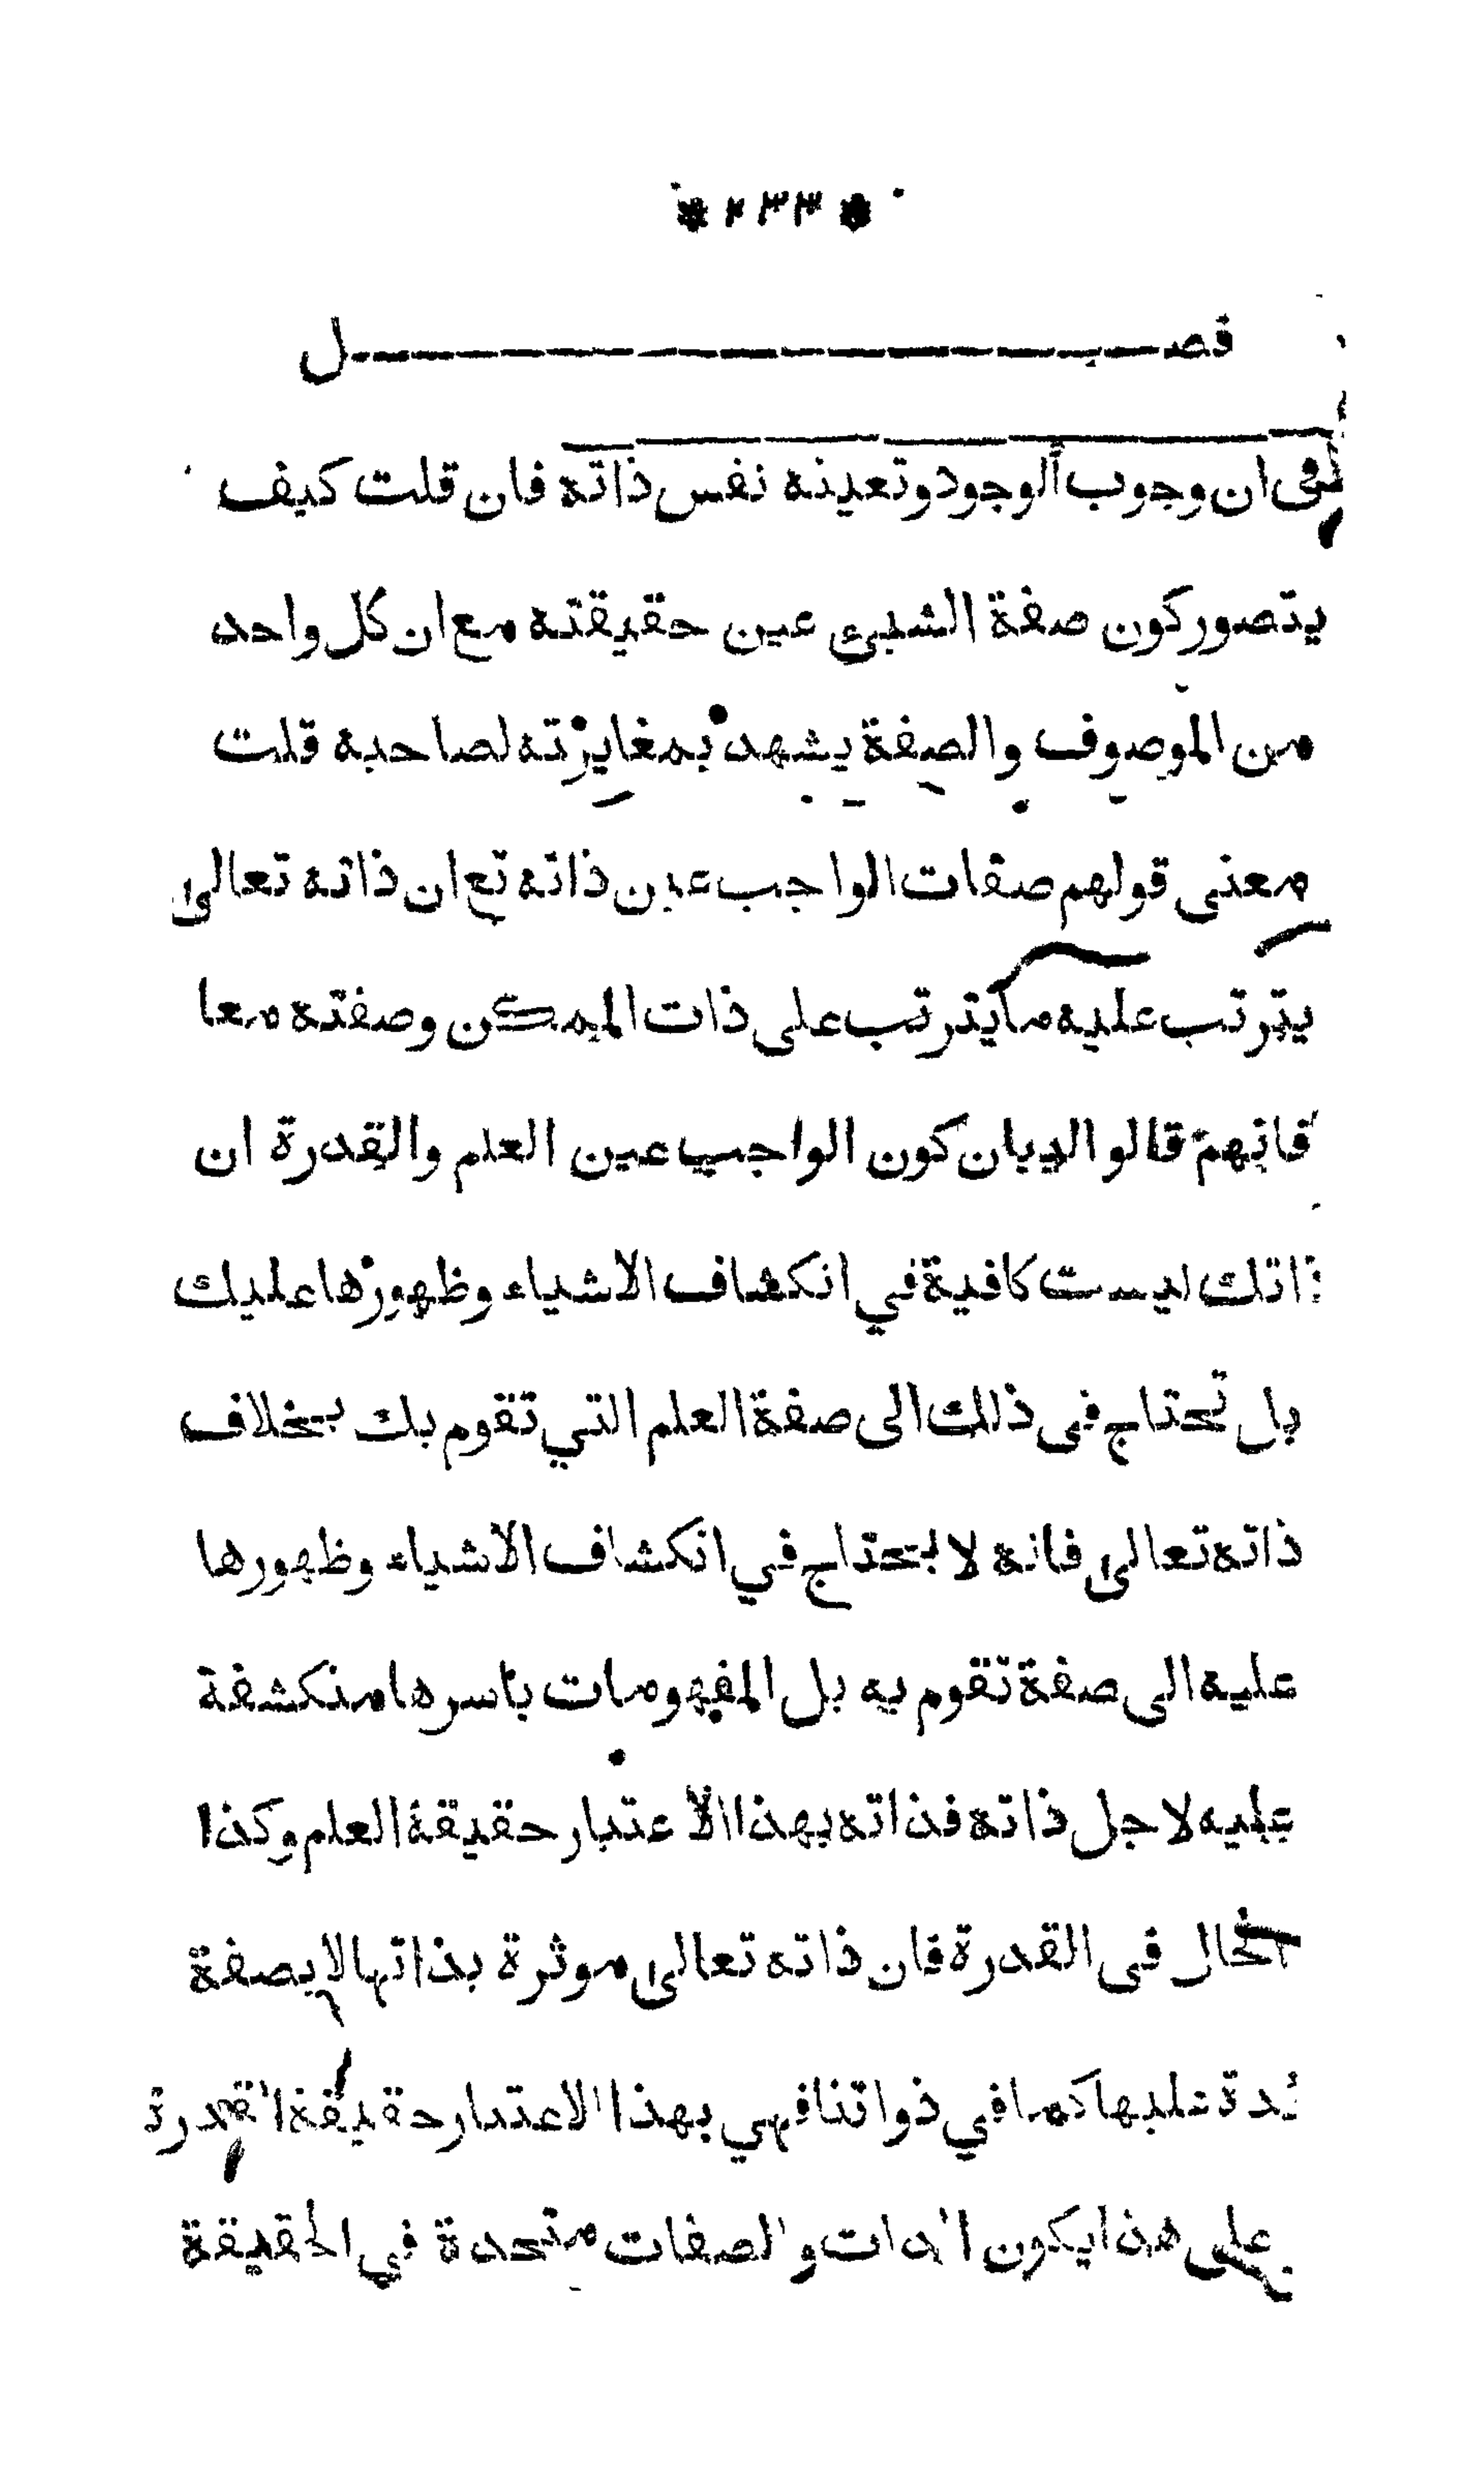 * ٢٣٣ *
فصـــــــــــــــل
في ان وجوب الوجود وتعينه نفس ذاته فان قلت كيف
يتصور كون صفة الشيئ عين حقيقته مع ان كل واحد
من الموصوف والصفة يشهد بمغايرته لصاحبه قلت
معنى قولهم صفات الواجب عين ذاته تع ان ذاته تعالى
يترتب عليه ما يترتب على ذات الممكن وصفته معا
فانهم قالو البيان كون الواجب عين العلم والقدرة ان
ذاتك ليست كافية في انكشاف الاشياء وظهورها عليك
بل تحتاج في ذلك الى صفة العلم التي تقوم بك بخلاف
ذاته تعالى فانه لا يحتاج في انكشاف الاشياء وظهورها
عليه الى صفة تقوم به بل المفهومات باسرها منكشفة
عليه لاجل ذاته فذاته بهذا الاعتبار حقيقة العلم وكذا
الحال في القدرة فان ذاته تعالى موثرة بذاتها لا بصفة
عليها كما في ذواتنا فهي بهذا الاعتبار حقيقة القدرة
على هذا يكون الذات والصفات متحدة في الحقيقة